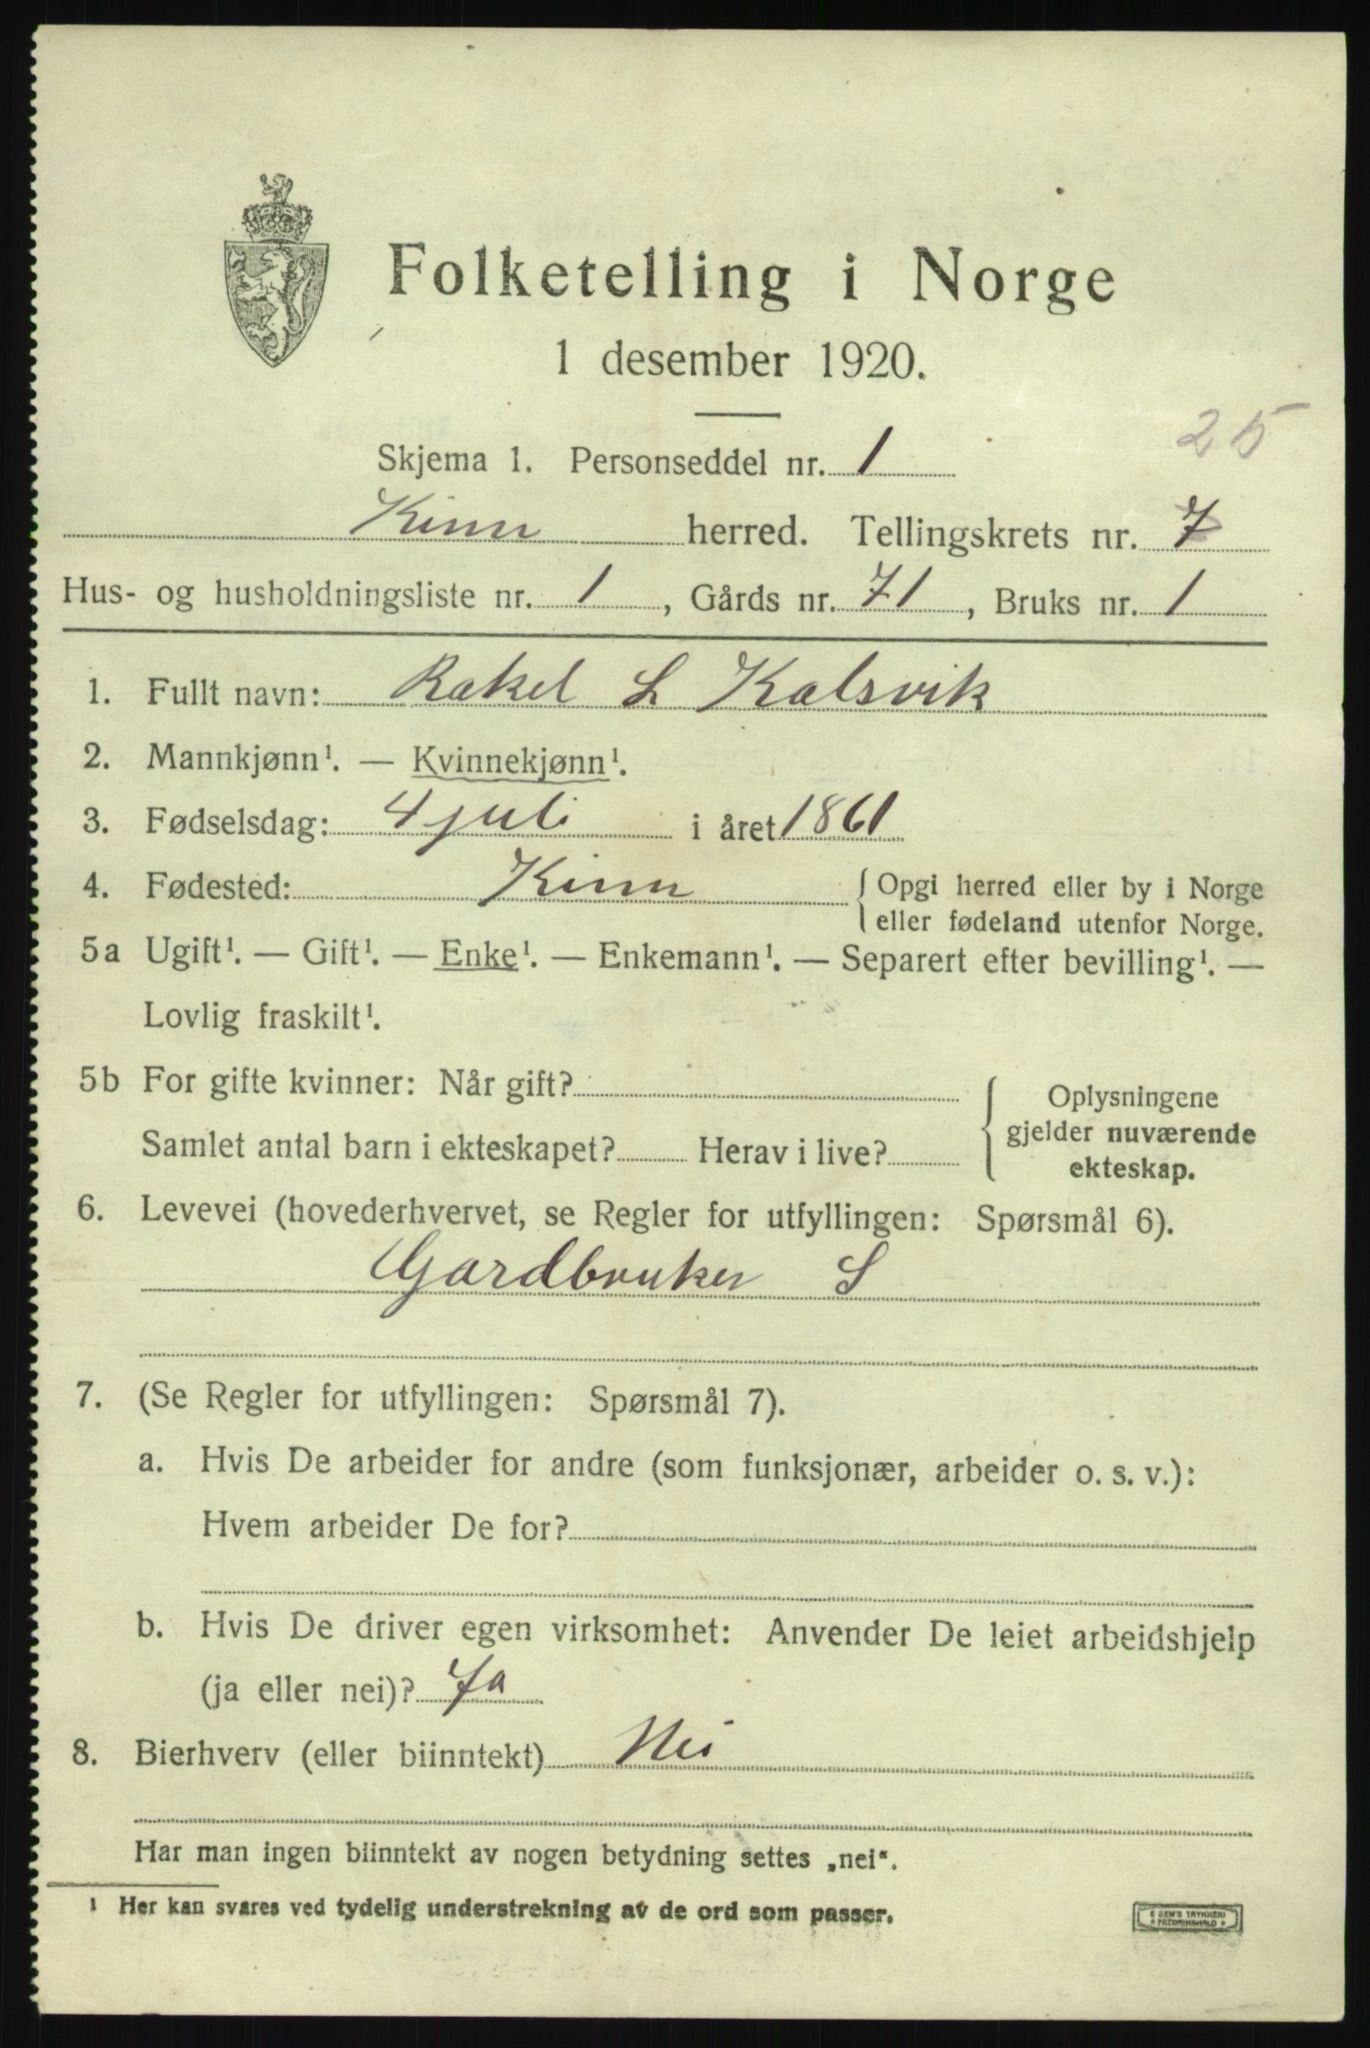 Folketelling i Norge
1 desember 1920.
25
Skjema 1. Personseddel nr. 1
Kinn herred. Tellingskrets nr. 7
Hus- og husholdningsliste nr. 1, Gårds nr. 71, Bruks nr. 1
1. Fullt navn: Rakel L Kalsvik
2. Mannkjønn¹. — Kvinnekjønn¹.
3. Fødselsdag: 4 juli i året 1861
4. Fødested: Kinn { Opgi herred eller by i Norge
eller fødeland utenfor Norge.
5a Ugift¹. — Gift¹. — Enke¹. — Enkemann¹. — Separert efter bevilling¹. —
Lovlig fraskilt¹.
5b For gifte kvinner: Når gift?
Samlet antal barn i ekteskapet? Herav i live?
{ Oplysningene
gjelder nuværende
ekteskap.
6. Levevei (hovederhvervet, se Regler for utfyllingen: Spørsmål 6).
Gardbruker S
7. (Se Regler for utfyllingen: Spørsmål 7).
a. Hvis De arbeider for andre (som funksjonær, arbeider o. s. v.):
Hvem arbeider De for?
b. Hvis De driver egen virksomhet: Anvender De leiet arbeidshjelp
(ja eller nei)? Ja
8. Bierhverv (eller biinntekt) Nei
Har man ingen biinntekt av nogen betydning settes „nei“.
¹ Her kan svares ved tydelig understrekning av de ord som passer.
E SEM'S TRYKKERI
FREDRIKSHALD